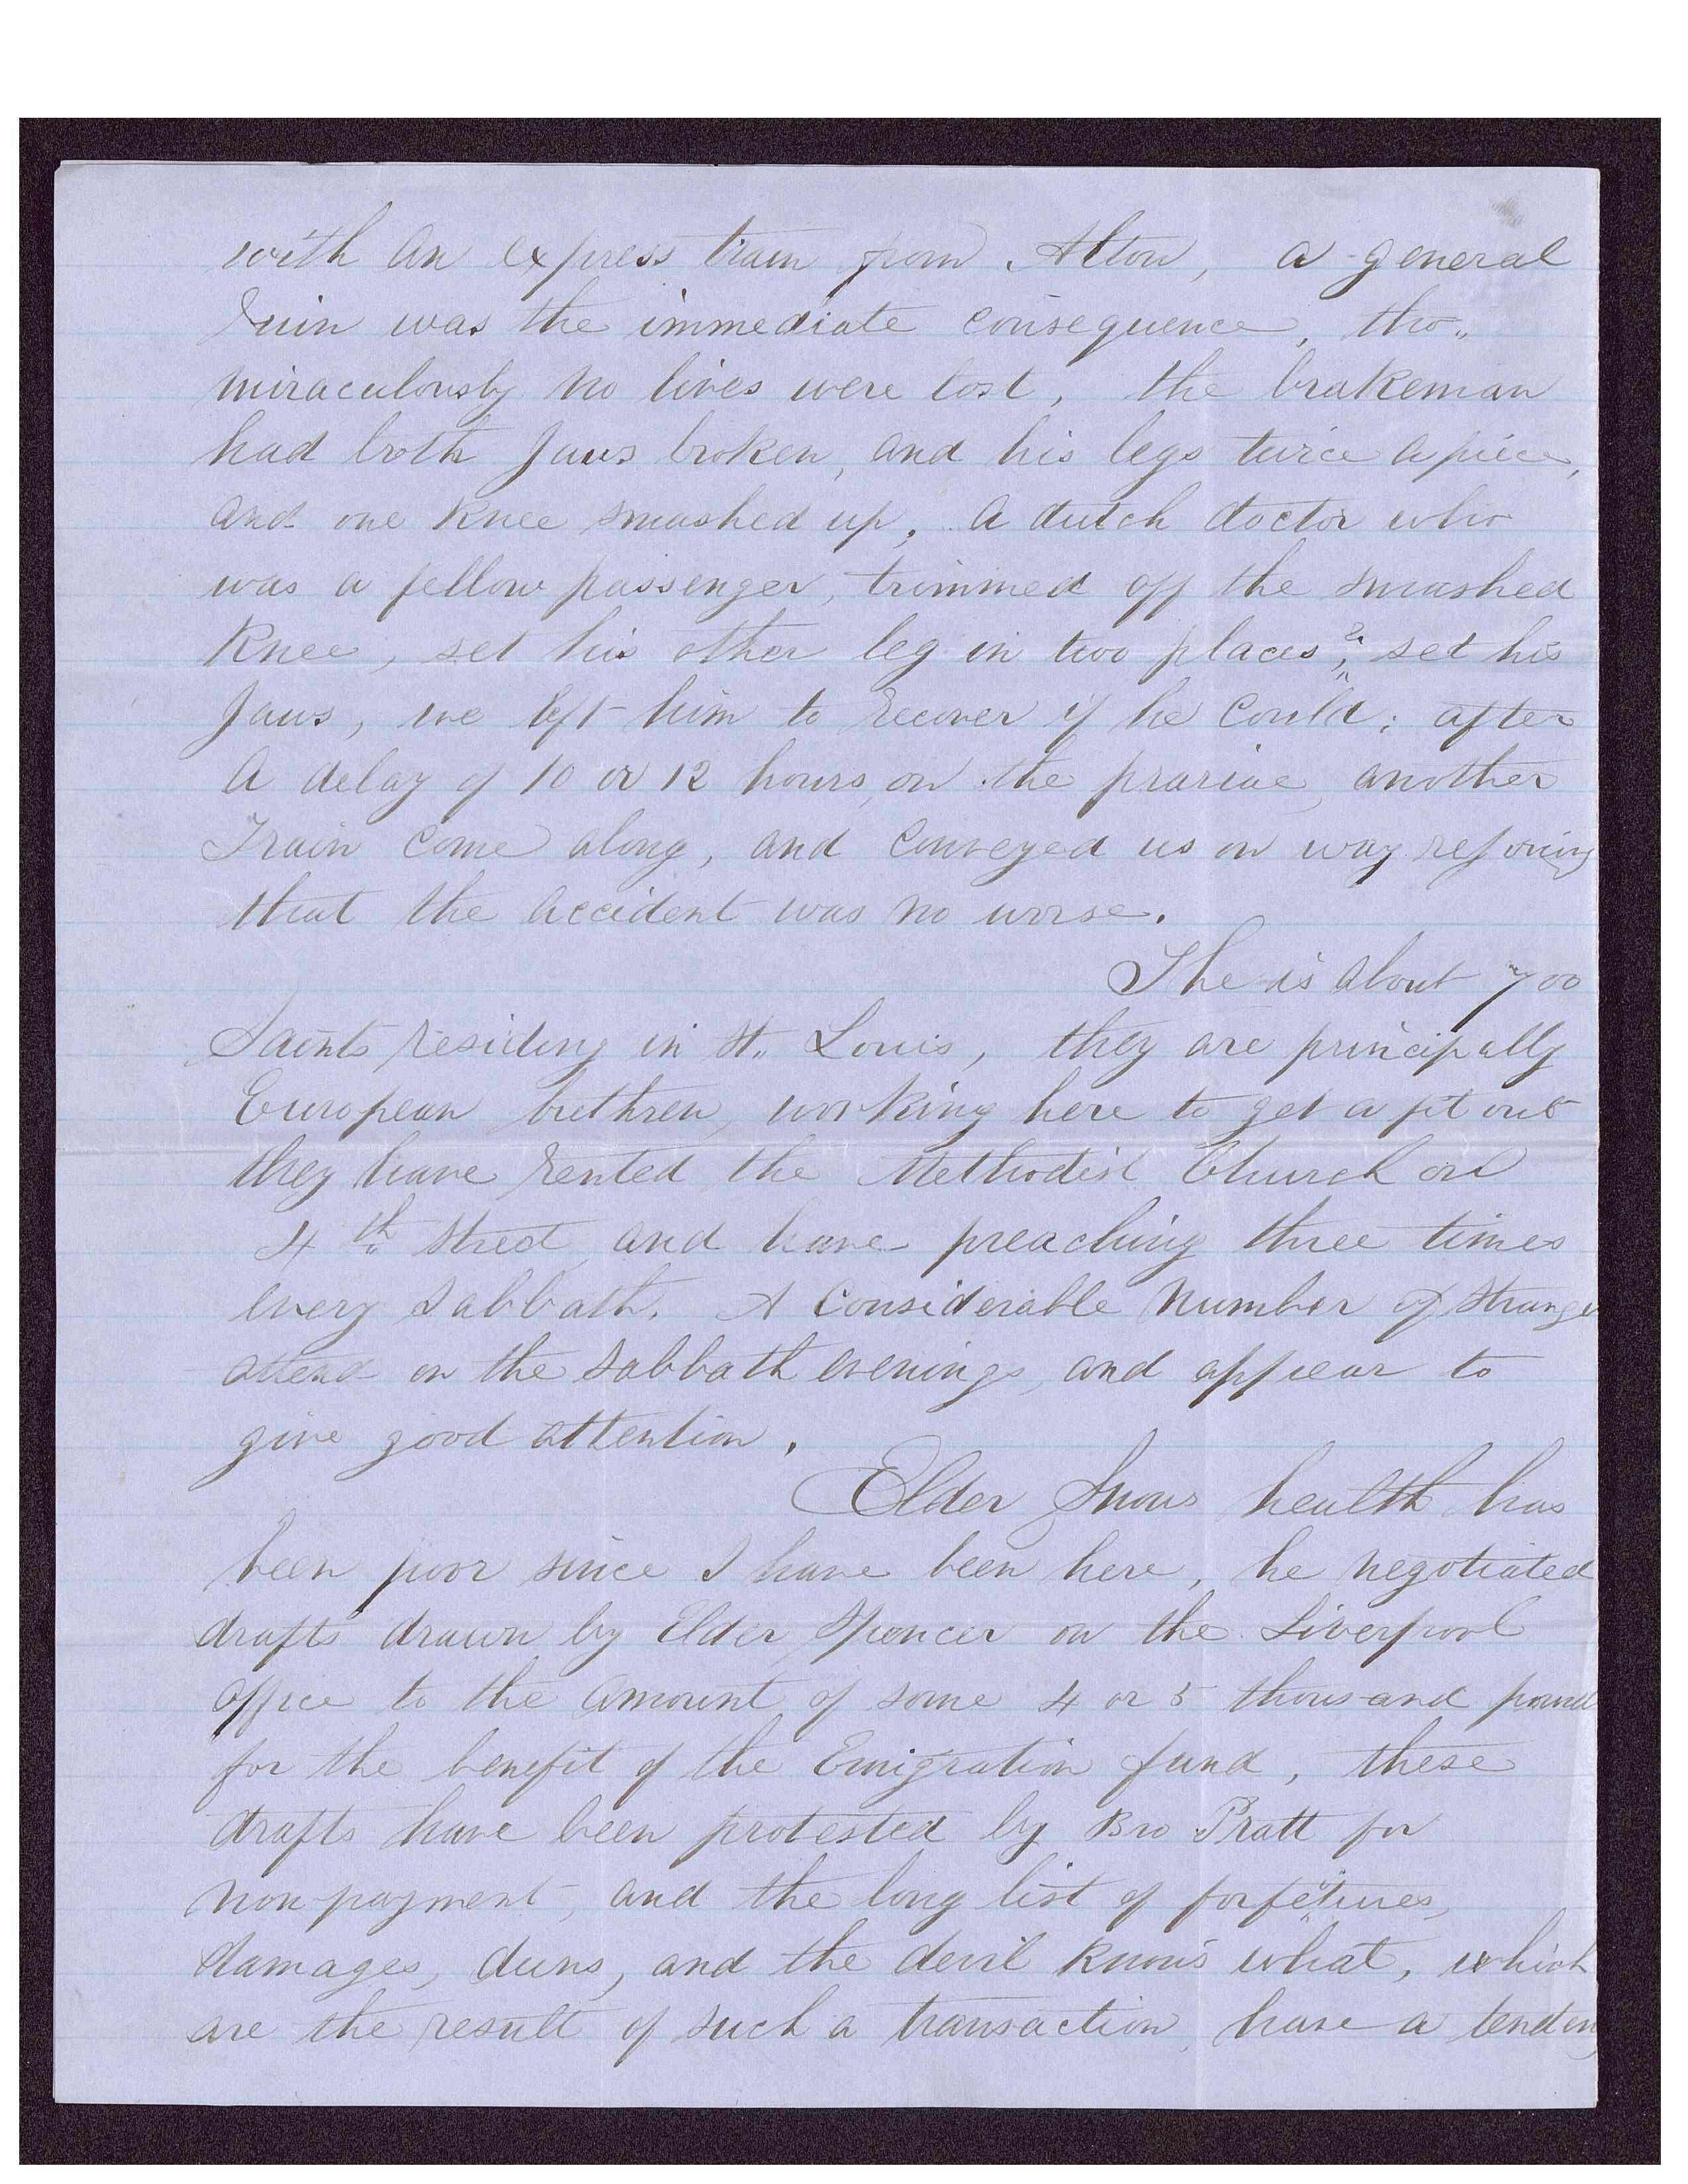 with an express train from Alton, a general
ruin was the immediate consequence, tho..
miraculously no lives were lost, the brakeman
had both Jaws broken, and his legs twice apiece,
and one Knee smashed up, a dutch doctor who
was a fellow passenger, trimmed off the smashed
Knee, set his other leg in two places, & set his
Jaws, we left him to recover if he could; after
a delay of 10 or 12 hours, on the prariae, another
Train come along, and Conveyed us on way rejoicing
that the accident was no worse.
The is about 700
Saints residing in St. Louis, they are principally
European brethren, working here to get a fit out
they have rented the Methodist Church on
4th Street, and have preaching three times
every Sabbath. A Considerable Number of Strange
attend on the Sabbath evenings, and appear to
give good attention.
Elder Snows health has
been poor since I have been here, he negotiated
drafts drawn by Elder Spencer on the Liverpool
office to the amount of some 4 or 5 thousand pound
for the benefit of the Emigration fund, these
drafts have been protested by Bro Pratt for
non payment, and the long list of forfetures,
damages, duns, and the devil knows what, which
are the result of such a transaction, have a tendency